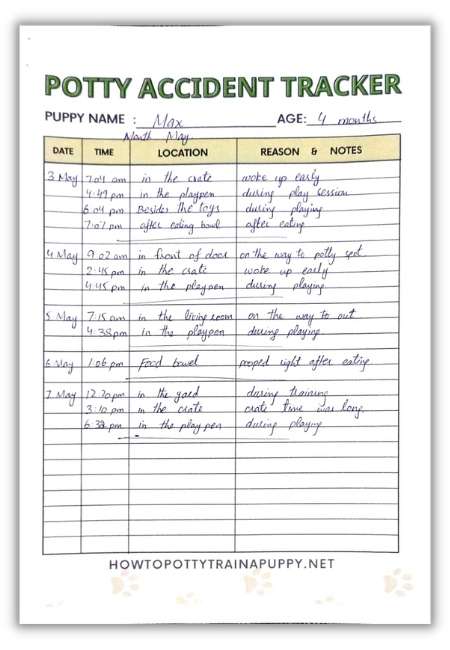 POTTY ACCIDENT TRACKER
PUPPY NAME : Max AGE: 4 months
Month May
DATE TIME LOCATION REASON & NOTES
3 May 7:04 am in the crate woke up early
4:49 pm in the playpen during play session
6:04 pm Besides the toys during playing
7:07 pm after eating bowl after eating
4 May 9:02 am in front of door on the way to potty spot
2:45 pm in the crate woke up early
4:45 pm in the playpen during playing
5 May 7:15 am in the living room on the way to out
4:38 pm in the playpen during playing
6 May 1:06 pm Food bowel pooped right after eating
7 May 12:20 pm in the yard during training
3:10 pm in the crate crate time was long
6:38 pm in the play pen during playing
HOWTOPOTTYTRAINAPUPPY.NET